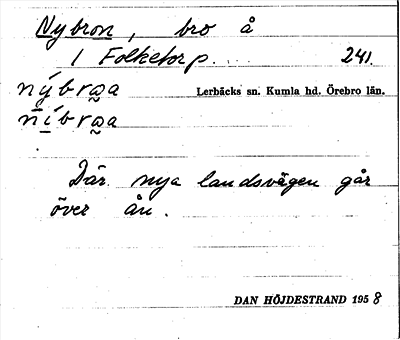 Nybron, bro å
1 Folketorp. 241.
nýbrꜵa Lerbäcks sn. Kumla hd. Örebro län.
níbrꜵa
Där nya landsvägen går
över ån.
DAN HÖJDESTRAND 1958